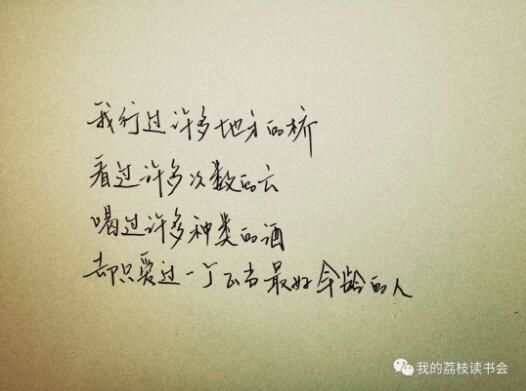 我行过许多地方的桥
看过许多次数的云
喝过许多种类的酒
却只爱过一个正当最好年龄的人
我的荔枝读书会